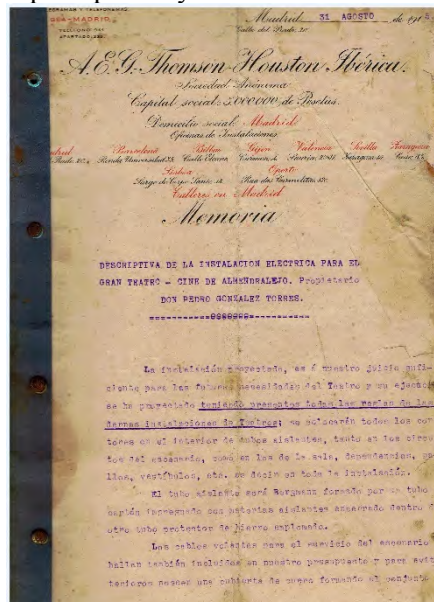 GRAMAS Y TELEFONEMAS
MADRID
TELÉFONO
APARTADO
Madrid 31 AGOSTO de 191
Calle del Prado, 20
A.E.G. Thomson Houston Ibérica.
Sociedad Anónima
Capital social: 5.000.000, de Pesetas.
Domicilio social Madrid
Oficinas de Instalaciones:
Barcelona Bilbao Gijón Valencia Sevilla Zaragoza
Lisboa Oporto
Talleres en Madrid
Memoria
DESCRIPTIVA DE LA INSTALACION ELECTRICA PARA EL
GRAN TEATRO - CINE DE ALMENDRALEJO. Propietario
DON PEDRO GONZALEZ TORRES.
La instalación proyectada, es á nuestro juicio sufi-
ciente para las futuras necesidades del Teatro y su ejecución
se ha proyectado teniendo presentes todas las reglas de las
dernas instalaciones de Teatros; se colocarán todos los con
tores en el interior de tubos aislantes, tanto en los circu
tos del escenario, como en los de la sala, dependencias, pa
llos, vestíbulos, etc. es decir en toda la instalación.
El tubo aislante será Bergmann formado por un tubo
cartón impregnado con materias aislantes encerrado dentro d
otro tubo protector de hierro emplomado.
Los cables volantes para el servicio del escenario
hallan también incluidos en nuestro presupuesto y para evit
poseen una cubierta de formando el conjunt